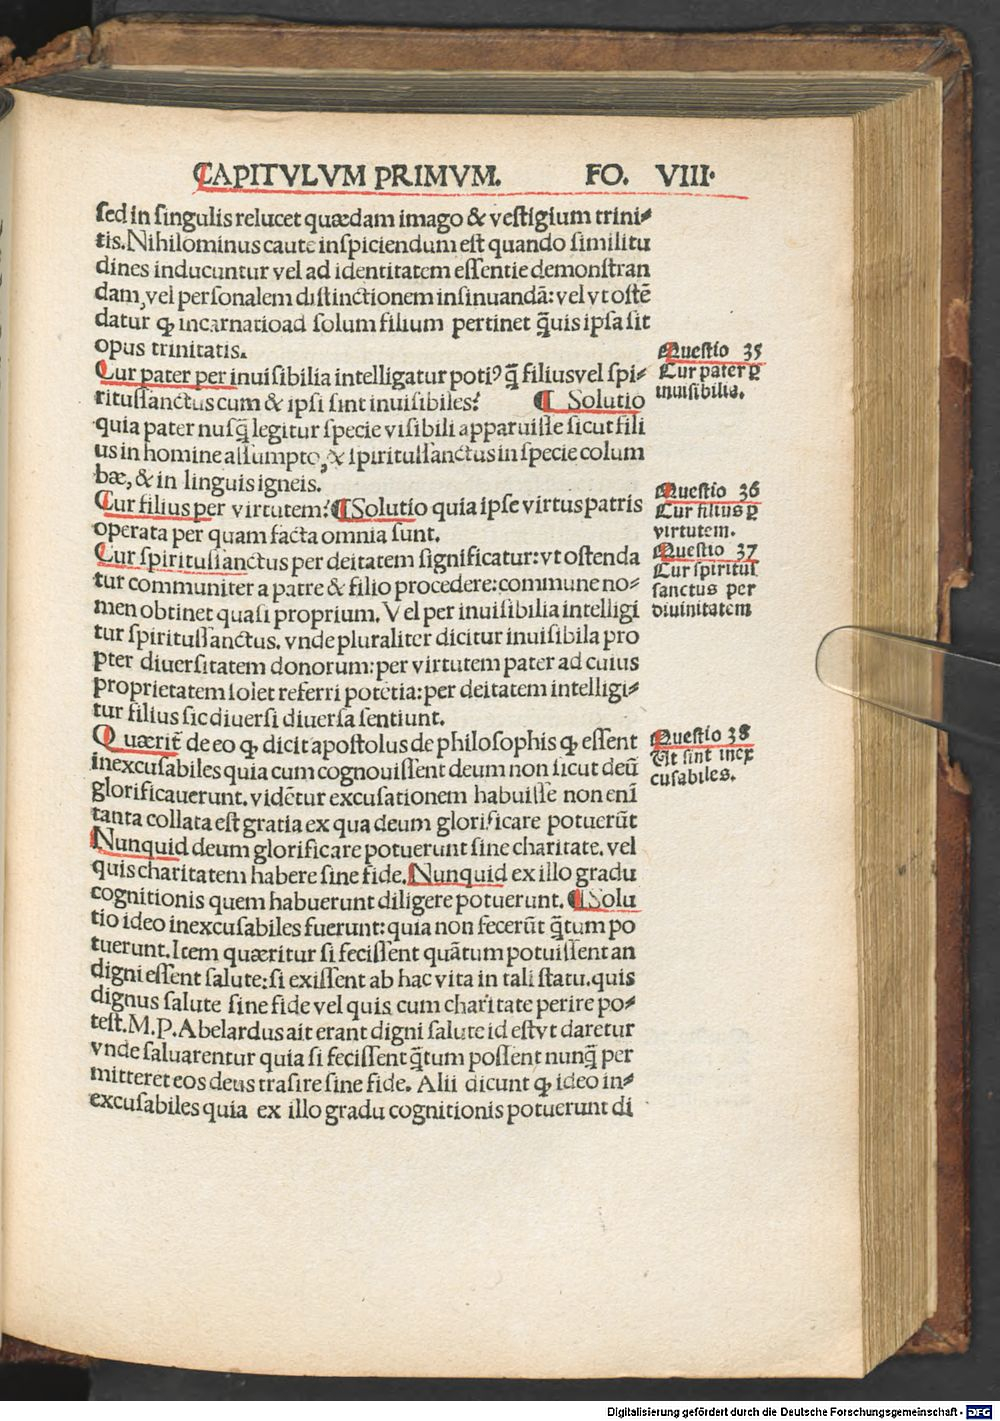 CAPITVLVM PRIMVM. FO. VIII.
sed in singulis relucet quædam imago & vestigium trini⸗
tis. Nihilominus caute inspiciendum est quando similitu
dines inducuntur vel ad identitatem essentie demonstran
dam, vel personalem distinctionem insinuandã: vel vt ostẽ
datur ꝙ incarnatioad solum filium pertinet q̃uis ipsa sit
opus trinitatis.
Cur pater per inuisibilia intelligatur potiꝰ q̃ filiusvel spi⸗
ritussanctus cum & ipsi sint inuisibiles? ¶ Solutio
quia pater nusq̃ legitur specie visibili apparuisse sicut fili
us in homine assumpto, & spiritussanctus in specie colum
bæ, & in linguis igneis.
Cur filius per virtutem? ¶ Solutio quia ipse virtus patris
operata per quam facta omnia sunt.
Cur spiritussanctus per deitatem significatur: vt ostenda
tur communiter a patre & filio procedere: commune no⸗
men obtinet quasi proprium. Vel per inuisibilia intelligi
tur spiritussanctus. vnde pluraliter dicitur inuisibila pro
pter diuersitatem donorum: per virtutem pater ad cuius
proprietatem solet referri potẽtia: per deitatem intelligi⸗
tur filius sic diuersi diuersa sentiunt.
Quærit̃ de eo ꝙ dicit apostolus de philosophis ꝙ essent
inexcusabiles quia cum cognouissent deum non sicut deũ
glorificauerunt. vidẽtur excusationem habuisse non enĩ
tanta collata est gratia ex qua deum glorificare potuerũt
Nunquid deum glorificare potuerunt sine charitate. vel
quis charitatem habere sine fide. Nunquid ex illo gradu
cognitionis quem habuerunt diligere potuerunt. ¶ Solu
tio ideo inexcusabiles fuerunt: quia non fecerũt q̃tum po
tuerunt. Item quæritur si fecissent quãtum potuissent an
digni essent salute: si exissent ab hac vita in tali statu. quis
dignus salute sine fide vel quis cum charitate perire po⸗
test. M. P. Abelardus ait erant digni salute id est vt daretur
vnde saluarentur quia si fecissent q̃tum possent nunq̃ per
mitteret eos deus trãsire sine fide. Alii dicunt ꝙ ideo in⸗
excusabiles quia ex illo gradu cognitionis potuerunt di
Questio 35
Cur pater ꝑ
inuisibilia.
Questio 36
Cur filius ꝑ
virtutem.
Questio 37
Cur spiritui
sanctus per
diuinitatem
Questio 38
Ut sint inex
cusabiles.
Digitalisierung gefördert durch die Deutsche Forschungsgemeinschaft - DFG